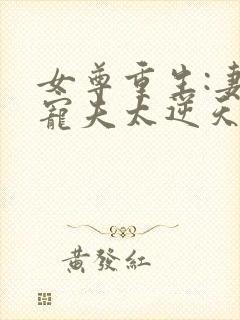 女尊重生:妻
寵夫太逆天
黃發紅